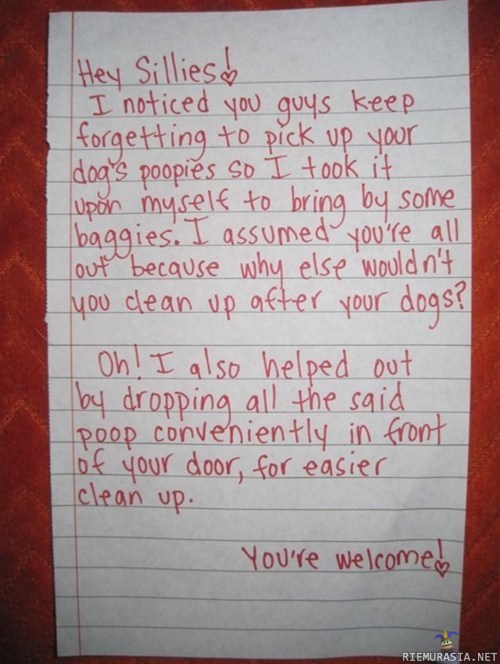 Hey Sillies!
I noticed you guys keep
forgetting to pick up your
dog's poopies so I took it
upon myself to bring by some
baggies. I assumed you're all
out because why else wouldn't
you clean up after your dogs?
Oh! I also helped out
by dropping all the said
poop conveniently in front
of your door, for easier
clean up.
You're welcome!
RIEMURASIA.NET